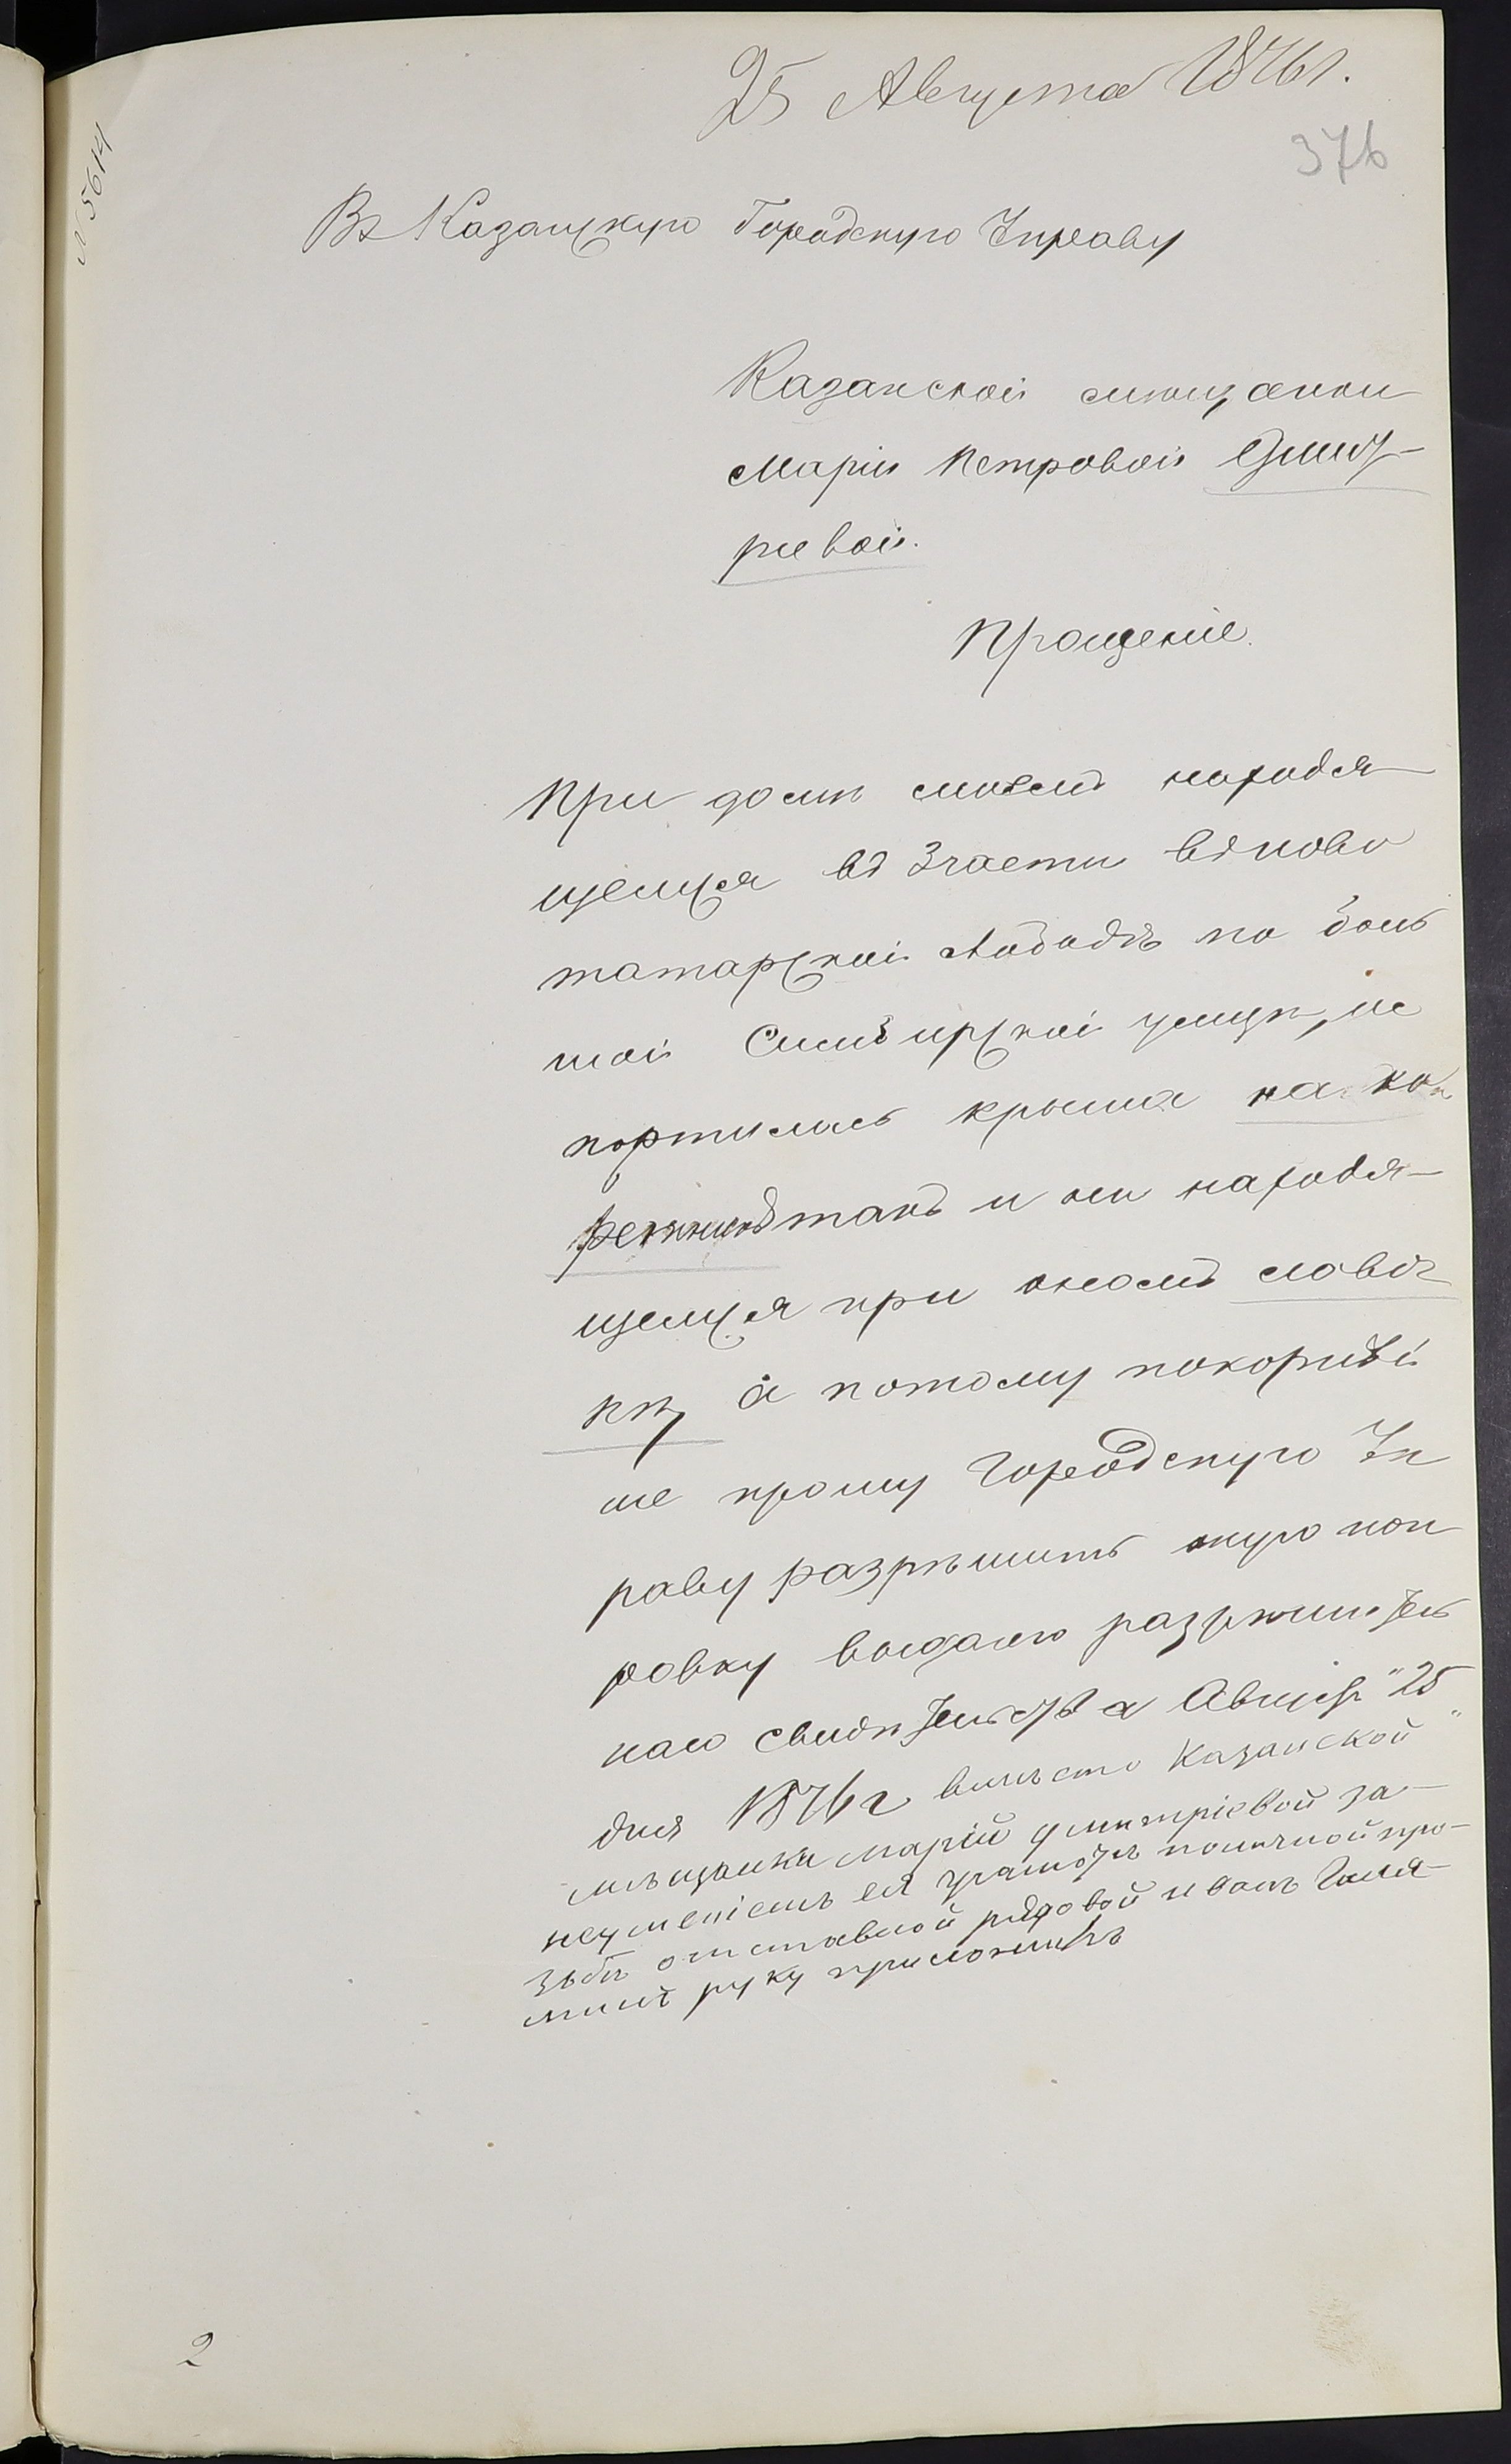 25 Августа 1876 г.
376
№ 5614
Въ Казанскую Городскую Управу
Казанской мѣщанки
Маріи Петровой Дмит-
ріевой.
Прошеніе.
При домѣ моемъ находя
щемся въ 3 части въ ново
татарской слободѣ по боль
шой Симбирской улицѣ, ис
портилась крыша на ко
такъ и на находя-
щемся при ономъ
а потому покорнѣй
ше прошу Городскую Уп
раву разрѣшить оную поп
равку выдачею разрѣшитель
наго свидѣтельства Августа "25"
дня 1876 г вмѣсто Казанской
мѣщанки Маріи Дмитріевой за
неуменіемъ ея грамотѣ по личной про-
зьбѣ отставной рядовой иванъ
руку приложилъ
2